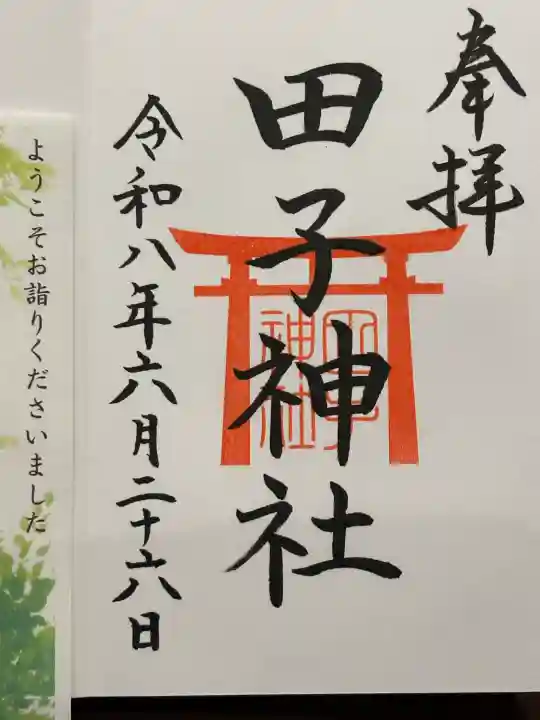 奉拝
田子神社
田子
神社
令和八年六月二十六日
ようこそお詣りくださいました